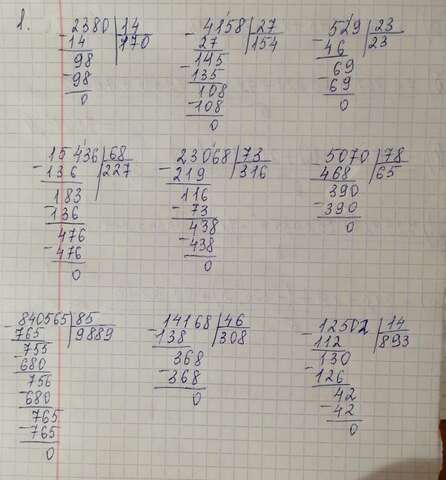 1.
2380 | 14
- 14 | 170
98
- 98
0
4158 | 27
- 27 | 154
145
- 135
108
- 108
0
529 | 23
- 46 | 23
69
- 69
0
15436 | 68
- 136 | 227
183
- 136
476
- 476
0
23068 | 73
- 219 | 316
116
- 73
438
- 438
0
5070 | 78
- 468 | 65
390
- 390
0
840565 | 85
- 765 | 9889
755
- 680
756
- 680
765
- 765
0
14168 | 46
- 138 | 308
368
- 368
0
12502 | 14
- 112 | 893
130
- 126
42
- 42
0